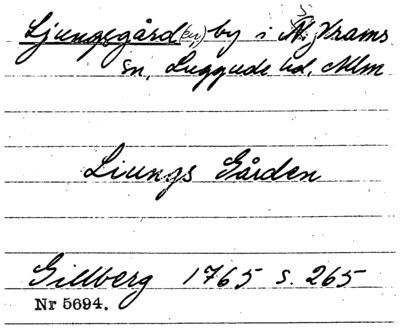 Ljungsgård(en) by i N. Vrams
sn, Luggude hd. Mlm
Liungs Gården
Gillberg 1765 s. 265
Nr 5694.